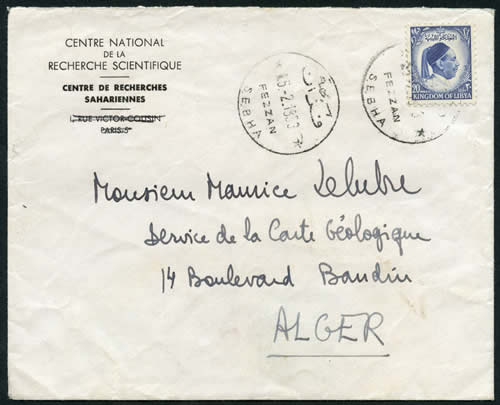 CENTRE NATIONAL
DE LA
RECHERCHE SCIENTIFIQUE
CENTRE DE RECHERCHES
SAHARIENNES
1, RUE VICTOR-COUSIN
PARIS-5e
FEZZAN
SEBHA
20
KINGDOM OF LIBYA
FEZZAN
SEBHA
Monsieur Maurice Lelubre
Service de la Carte Géologique
14 Boulevard Baudin
ALGER